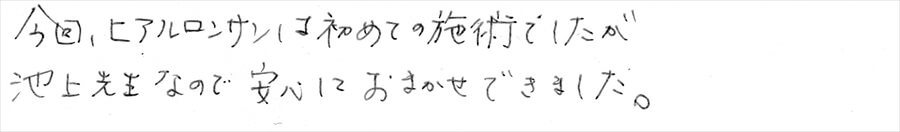 今回、ヒアルロンサンは初めての施術でしたが
池上先生なので安心しておまかせできました。